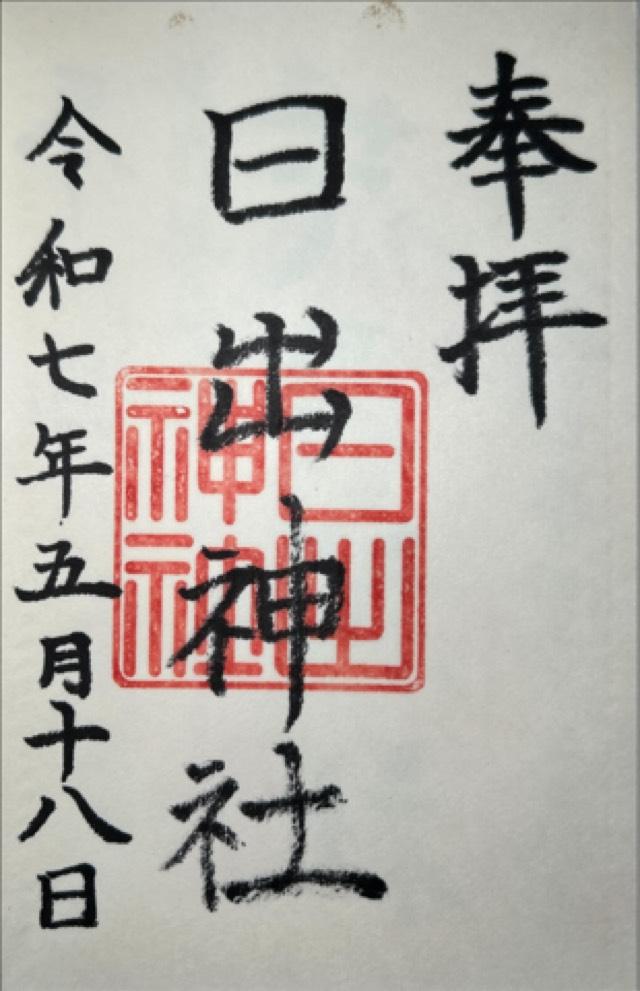 奉拝
日出神社
日出神社
令和七年五月十八日